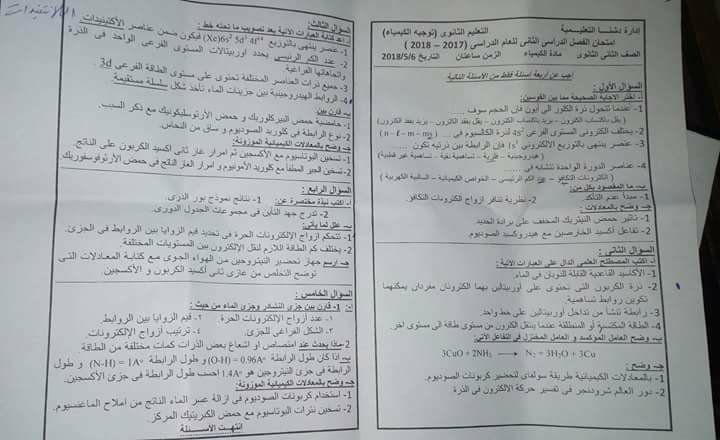 إدارة دشنا التعليمية
التعليم الثانوى (توجيه الكيمياء)
امتحان الفصل الدراسى الثانى للعام الدراسى (2017 – 2018)
الصف الثانى الثانوى مادة الكيمياء الزمن ساعتان التاريخ 2018/5/6
أجب عن أربعة أسئلة فقط من الأسئلة التالية
السؤال الأول :
أ- أختر الاجابة الصحيحة مما بين القوسين:
1- عندما تتحول ذرة الكلور الى أيون فان الحجم سوف
( يقل باكتساب الكترون – يزيد باكتساب الكترون – يقل بفقد الكترون – يزيد بفقد الكترون)
2- يختلف الكترونى المستوى الفرعى 4s² لذرة الكالسيوم فى ... ( n – ℓ – m – ms )
3- عنصر ينتهى بالتوزيع الالكترونى s¹ فإن الرابطة بين ذرتيه تكون ....
( هيدروجينية – فلزية – تساهمية نقية – تساهمية غير قطبية)
4- عناصر الدورة الواحدة تتشابه فى ....
( الكترونات التكافؤ – عدد الكم الرئيسى – الخواص الكيميائية – السالبية الكهربية )
ب- ما المقصود بكل من:
1- مبدأ عدم التأكد. 2- نظرية تنافر ازواج الكترونات التكافؤ.
ج- وضح بالمعادلات
1- تاثير حمض النيتريك المخفف على برادة الحديد
2- تفاعل أكسيد الخارصين مع هيدروكسيد الصوديوم
السؤال الثانى :
أ- اكتب المصطلح العلمى الدال على العبارات الاتية :
1- الأكاسيد القاعدية القابلة للذوبان فى الماء.
2- ذرة الكربون التى تحتوى على أوربيتالين بهما الكترونان مفردان يمكنهما
تكوين روابط تساهمية.
3- رابطة تنشأ من تداخل أوربيتالين على خط واحد.
4- الطاقة المكتسبة أو المنطلقة عندما ينتقل الكترون من مستوى طاقة الى مستوى اخر.
ب- وضح العامل المؤكسد و العامل المختزل فى التفاعل الاتى:
3CuO + 2NH₃ → N₂ + 3H₂O + 3Cu
ج- وضح :
1- بالمعادلات الكيميائية طريقة سولفاى لتحضير كربونات الصوديوم.
2- دور العالم شرودنجر فى تفسير حركة الالكترون فى الذرة
السؤال الثالث:
أ- اعد كتابة العبارات الاتية بعد تصويب ما تحته خط :
1- عنصر ينتهى بالتوزيع (Xe)6s² 5d¹ 4f¹⁴ فيكون ضمن عناصر الأكتينيدات
2- عدد الكم الرئيسى يحدد اوربيتالات المستوى الفرعى الواحد فى الذرة
واتجاهاتها الفراغية.
3- جميع ذرات العناصر المختلفة تحتوى على مستوى الطاقة الفرعى 3d
4- الروابط الهيدروجينية بين جزيئات الماء تأخذ شكل سلسلة مستقيمة
ب- قارن بين
1- حامضية حمض البيركلوريك و حمض الأرثوسليكونيك مع ذكر السبب.
2- نوع الرابطة فى كلوريد الصوديوم و ساق من النحاس.
ج- وضح بالمعادلات الكيميائية الموزونة:
1- تسخين البوتاسيوم مع الأكسجين ثم امرار غاز ثانى أكسيد الكربون على الناتج.
2- تسخين الجير المطفأ مع كلوريد الأمونيوم و امرار الغاز الناتج فى حمض الأرثوفوسفوريك.
السؤال الرابع :
أ- اكتب نبذة مختصرة عن: 1- نتائج نموذج بور الذرى.
2- تدرج جهد التأين فى مجموعات الجدول الدورى.
ب- علل لما يأتى:
1- تتحكم ازواج الالكترونات الحرة فى تحديد قيم الزوايا بين الروابط فى الجزئ.
2- يختلف كم الطاقة اللازم لنقل الإلكترون بين المستويات المختلفة.
ج- ارسم جهاز تحضير النيتروجين من الهواء الجوى مع كتابة المعادلات التى
توضح التخلص من غازى ثانى أكسيد الكربون و الأكسجين.
السؤال الخامس :
أ- 1- قارن بين جزئ النشادر وجزئ الماء من حيث :
1- عدد ازواج الإلكترونات الحرة. 2- قيم الزوايا بين الروابط.
3- الشكل الفراغى للجزئ. 4- ترتيب أزواج الالكترونات.
2- ماذا يحدث عند امتصاص او اشعاع بعض الذرات كمات مختلفة من الطاقة
ب- اذا كان طول الرابطة (O-H) = 0.96A° و طول الرابطة (N-H) = 1A° و طول
الرابطة فى جزئ النيتروجين هو 1.4A° احسب طول الرابطة فى جزئ الأكسجين.
ج- وضح بالمعادلات الكيميائية الموزونة:
1- استخدام كربونات الصوديوم فى ازالة عسر الماء الناتج من املاح الماغنسيوم.
2- تسخين نترات البوتاسيوم مع حمض الكبريتيك المركز.
انتهت الأسئلة